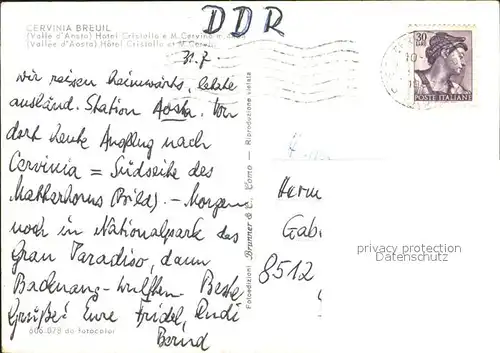 DDR
CERVINIA BREUIL
(Valle d'Aosta) Hotel Cristallo e M. Cervino
(Vallée d'Aosta) Hôtel Cristallo et M. Cervin
31.7.
30
POSTE ITALIANE
wir reisen heimwärts, letzte
ausländ. Station Aosta. Von
dort heute Ausflug nach
Cervinia = Südseite des
Matterhorns (Bild). - Morgen
noch in Nationalpark des
Gran Paradiso, dann
Backnang - Wulffen. Beste
Grüße! Eure Fridel, Rudi
Bernd
606/078 da fotocolor
Fotoedizioni Brunner & C. Como - Riproduzione vietata
Herrn
Gab
8512
privacy protection
Datenschutz